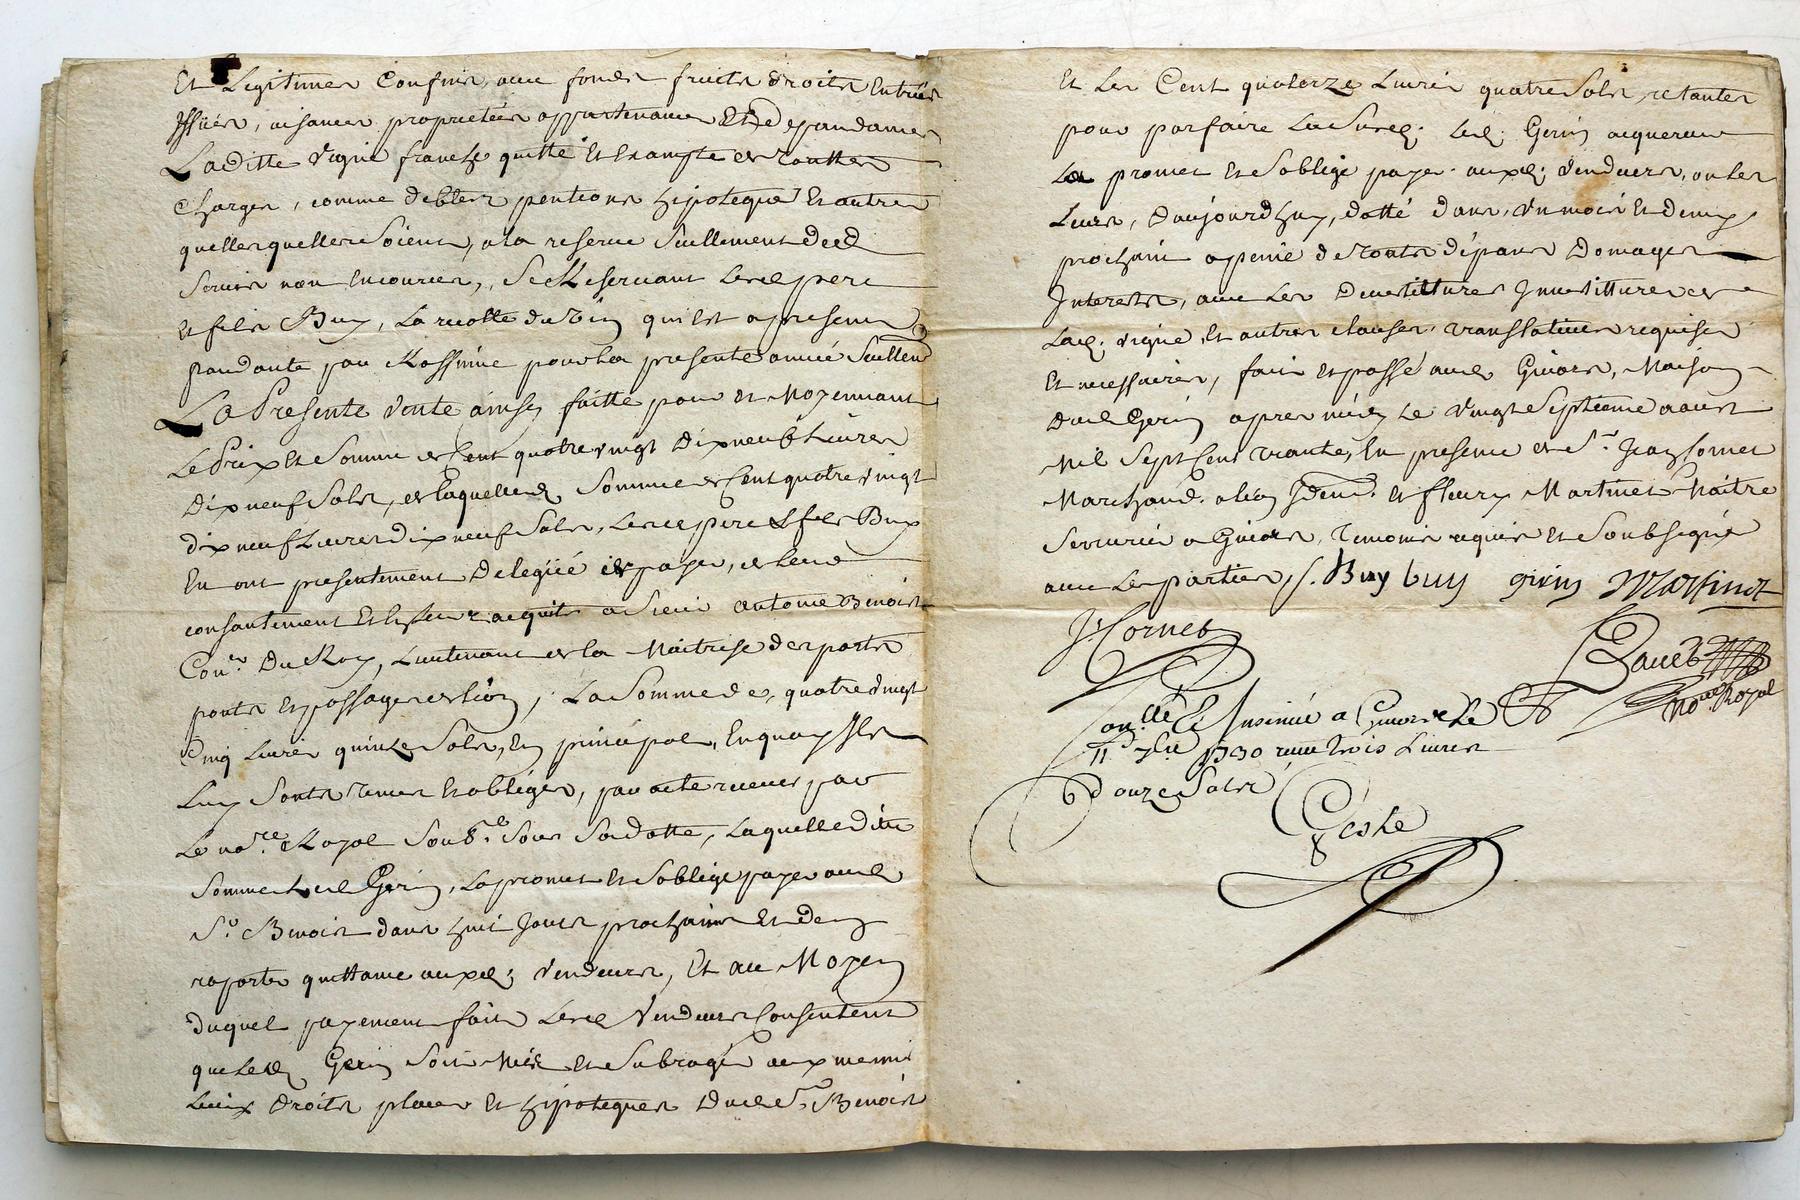 Et Legitimes Confins, avec fonds fruits droits Entrées
Issües, aisances proprietées appartenances Et Dependances
La Ditte vigne franche quitte Et Exampte de touttes
Charges, comme debtes pentions hipoteque Et autres
quelles quelles Soient, a la reserve Seullement Desd
Servis non Encourus, Se Reservant Lesd pere
et fils Buy, La recolte du vin qui Est a present
pandante par Rassinne pour la presente année Seullemt
La Presente vente ainsy faitte pour et Moyennant
Le Prix et Somme de Cent quatre vingt Dix neuf Livres
Dix neuf Sols, de laquelle d Somme de Cent quatre vingt
dix neuf Livres dix neuf Sols, Lesd pere & fils Buy
En ont presentement delegué a payer, de leur
consantement Et a leur acquit a Sieur antoine Benoist
Conr. Du Roy, Lieutenant de la Maitrise des ports
ponts Et passages de lion, La Somme de quatre vingt
Cinq Livres quinze Sols, En principal, En quoy Ils
Luy Sont tenus Et obligés, par acte receus par
Le nore. Royal Soubé. Sous Sa datte, Laquelle ditte
Somme Led Gerin, La promet Et Soblige payer aud
Sr. Benoist dans huit Jours prochains Et den
raporter quittance auxd; vendeurs, Et au Moyen
duquel payement fait Lesd Vendeurs Consentent
que Led Gerin Soit Mis Et Subrogé aux mesmes
Lieux droits places Et hipoteques Dud Sr. Benoist
Et Les Cent quatorze Livres quatre Sols restantes
pour parfaire La Susd; Led; Gerin acquereur
La promet Et Soblige payer auxd; Vendeurs, ou les
Leurs, Daujourdhuy, datté dans, Un mois Et demy
prochain a peine de touts dépans Domages
Interests, avec Les Devestitures Investitures de
Lad; vigne Et autres clauses translatives requises
Et necessaires, fait Et passé aud Givors, Maison
Dud Gerin apres midy Le vingt Septieme aoust
Mil Sept Cent trante, En presence de Sr. Jean Cornet
Marchand. aud Idem. et fleury Martinet Maitre
Serrurier a Givors, Temoins requis Et Soubsignés
avec Les parties, /. Buy buy girin Martinet
J. Cornet
nore. Royal
Conllé Et Insinué a Givors Le
11e 7bre 1730 reçu trois Livres
douze Sols